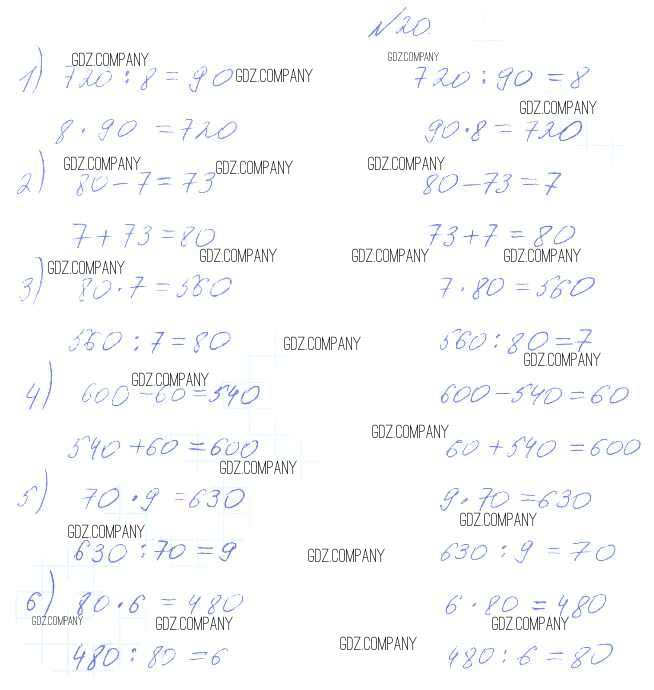 №20
GDZ.COMPANY GDZ.COMPANY
1) 720 : 8 = 90 GDZ.COMPANY 720 : 90 = 8
GDZ.COMPANY
8 · 90 = 720 90 · 8 = 720
GDZ.COMPANY GDZ.COMPANY GDZ.COMPANY
2) 80 - 7 = 73 80 - 73 = 7
7 + 73 = 80 73 + 7 = 80
GDZ.COMPANY GDZ.COMPANY GDZ.COMPANY GDZ.COMPANY
3) 80 · 7 = 560 7 · 80 = 560
560 : 7 = 80 GDZ.COMPANY 560 : 80 = 7
GDZ.COMPANY GDZ.COMPANY
4) 600 - 60 = 540 600 - 540 = 60
GDZ.COMPANY
540 + 60 = 600 60 + 540 = 600
GDZ.COMPANY
5) 70 · 9 = 630 9 · 70 = 630
GDZ.COMPANY GDZ.COMPANY
630 : 70 = 9 GDZ.COMPANY 630 : 9 = 70
6) 80 · 6 = 480 6 · 80 = 480
GDZ.COMPANY GDZ.COMPANY GDZ.COMPANY
480 : 80 = 6 GDZ.COMPANY 480 : 6 = 80